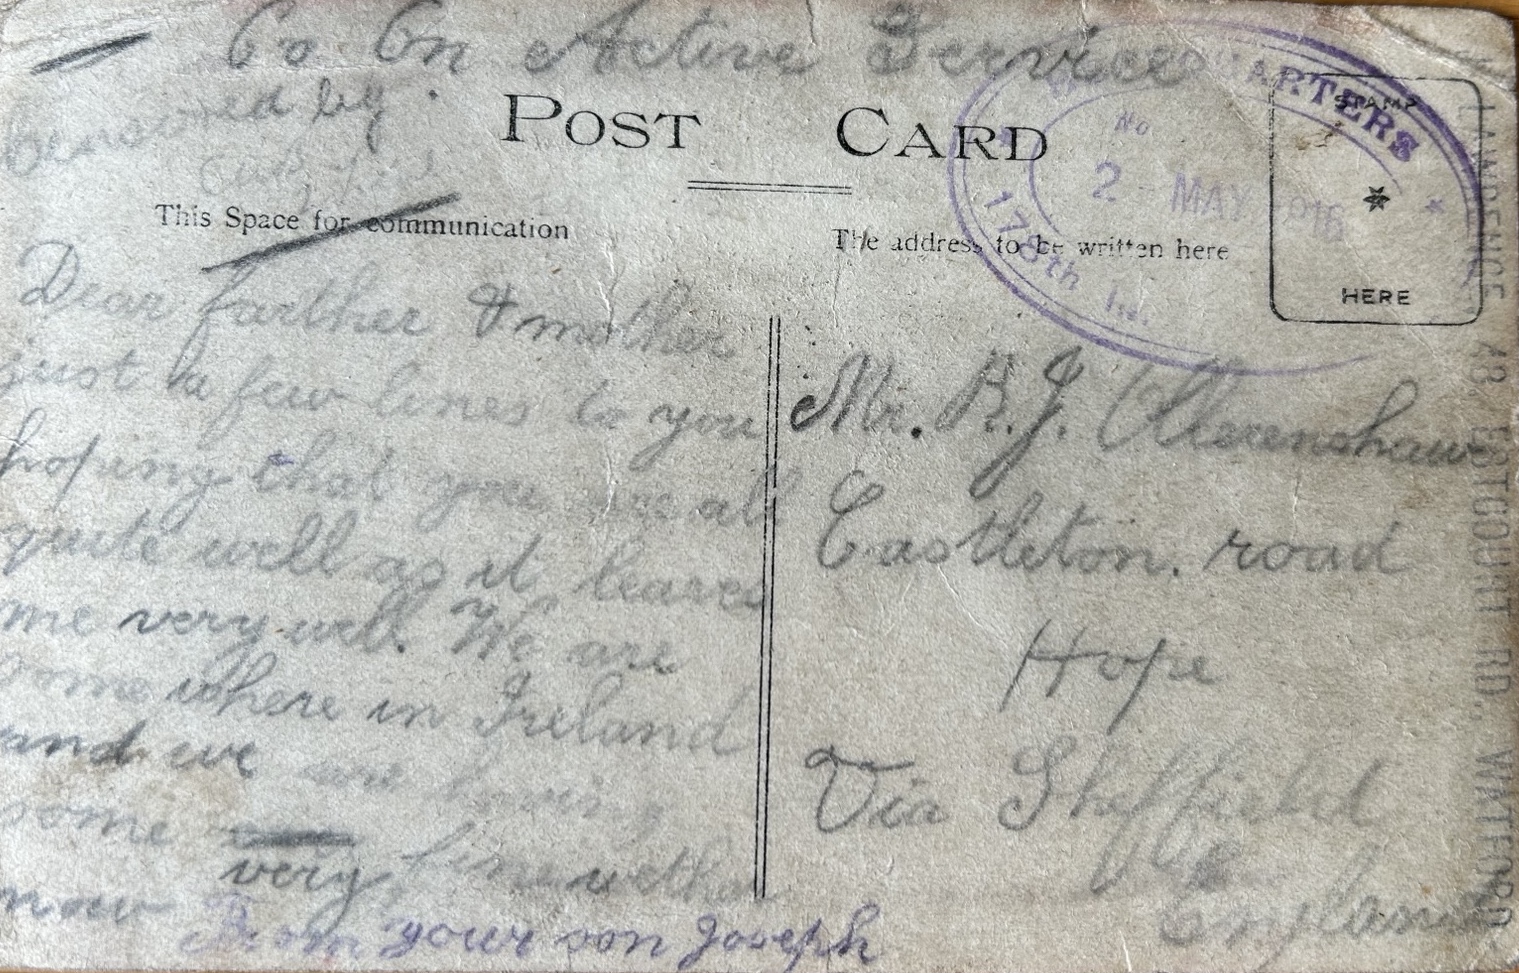 On Active Service
Censored by
POST CARD
This Space for communication
The address to be written here
STAMP
HERE
QUARTERS
No
2 - MAY 1916
178th In
Dear farther & mother
just a few lines to you
hoping that you are all
quite well as it leaves
me very well. We are
some where in Ireland
and we are having
some
very fine wether
now From your son Joseph
Mr. R. J. Ollerenshaw
Castleton. road
Hope
Via Sheffield
England
LAWRENCE 43 ESTCOURT RD. WATFORD